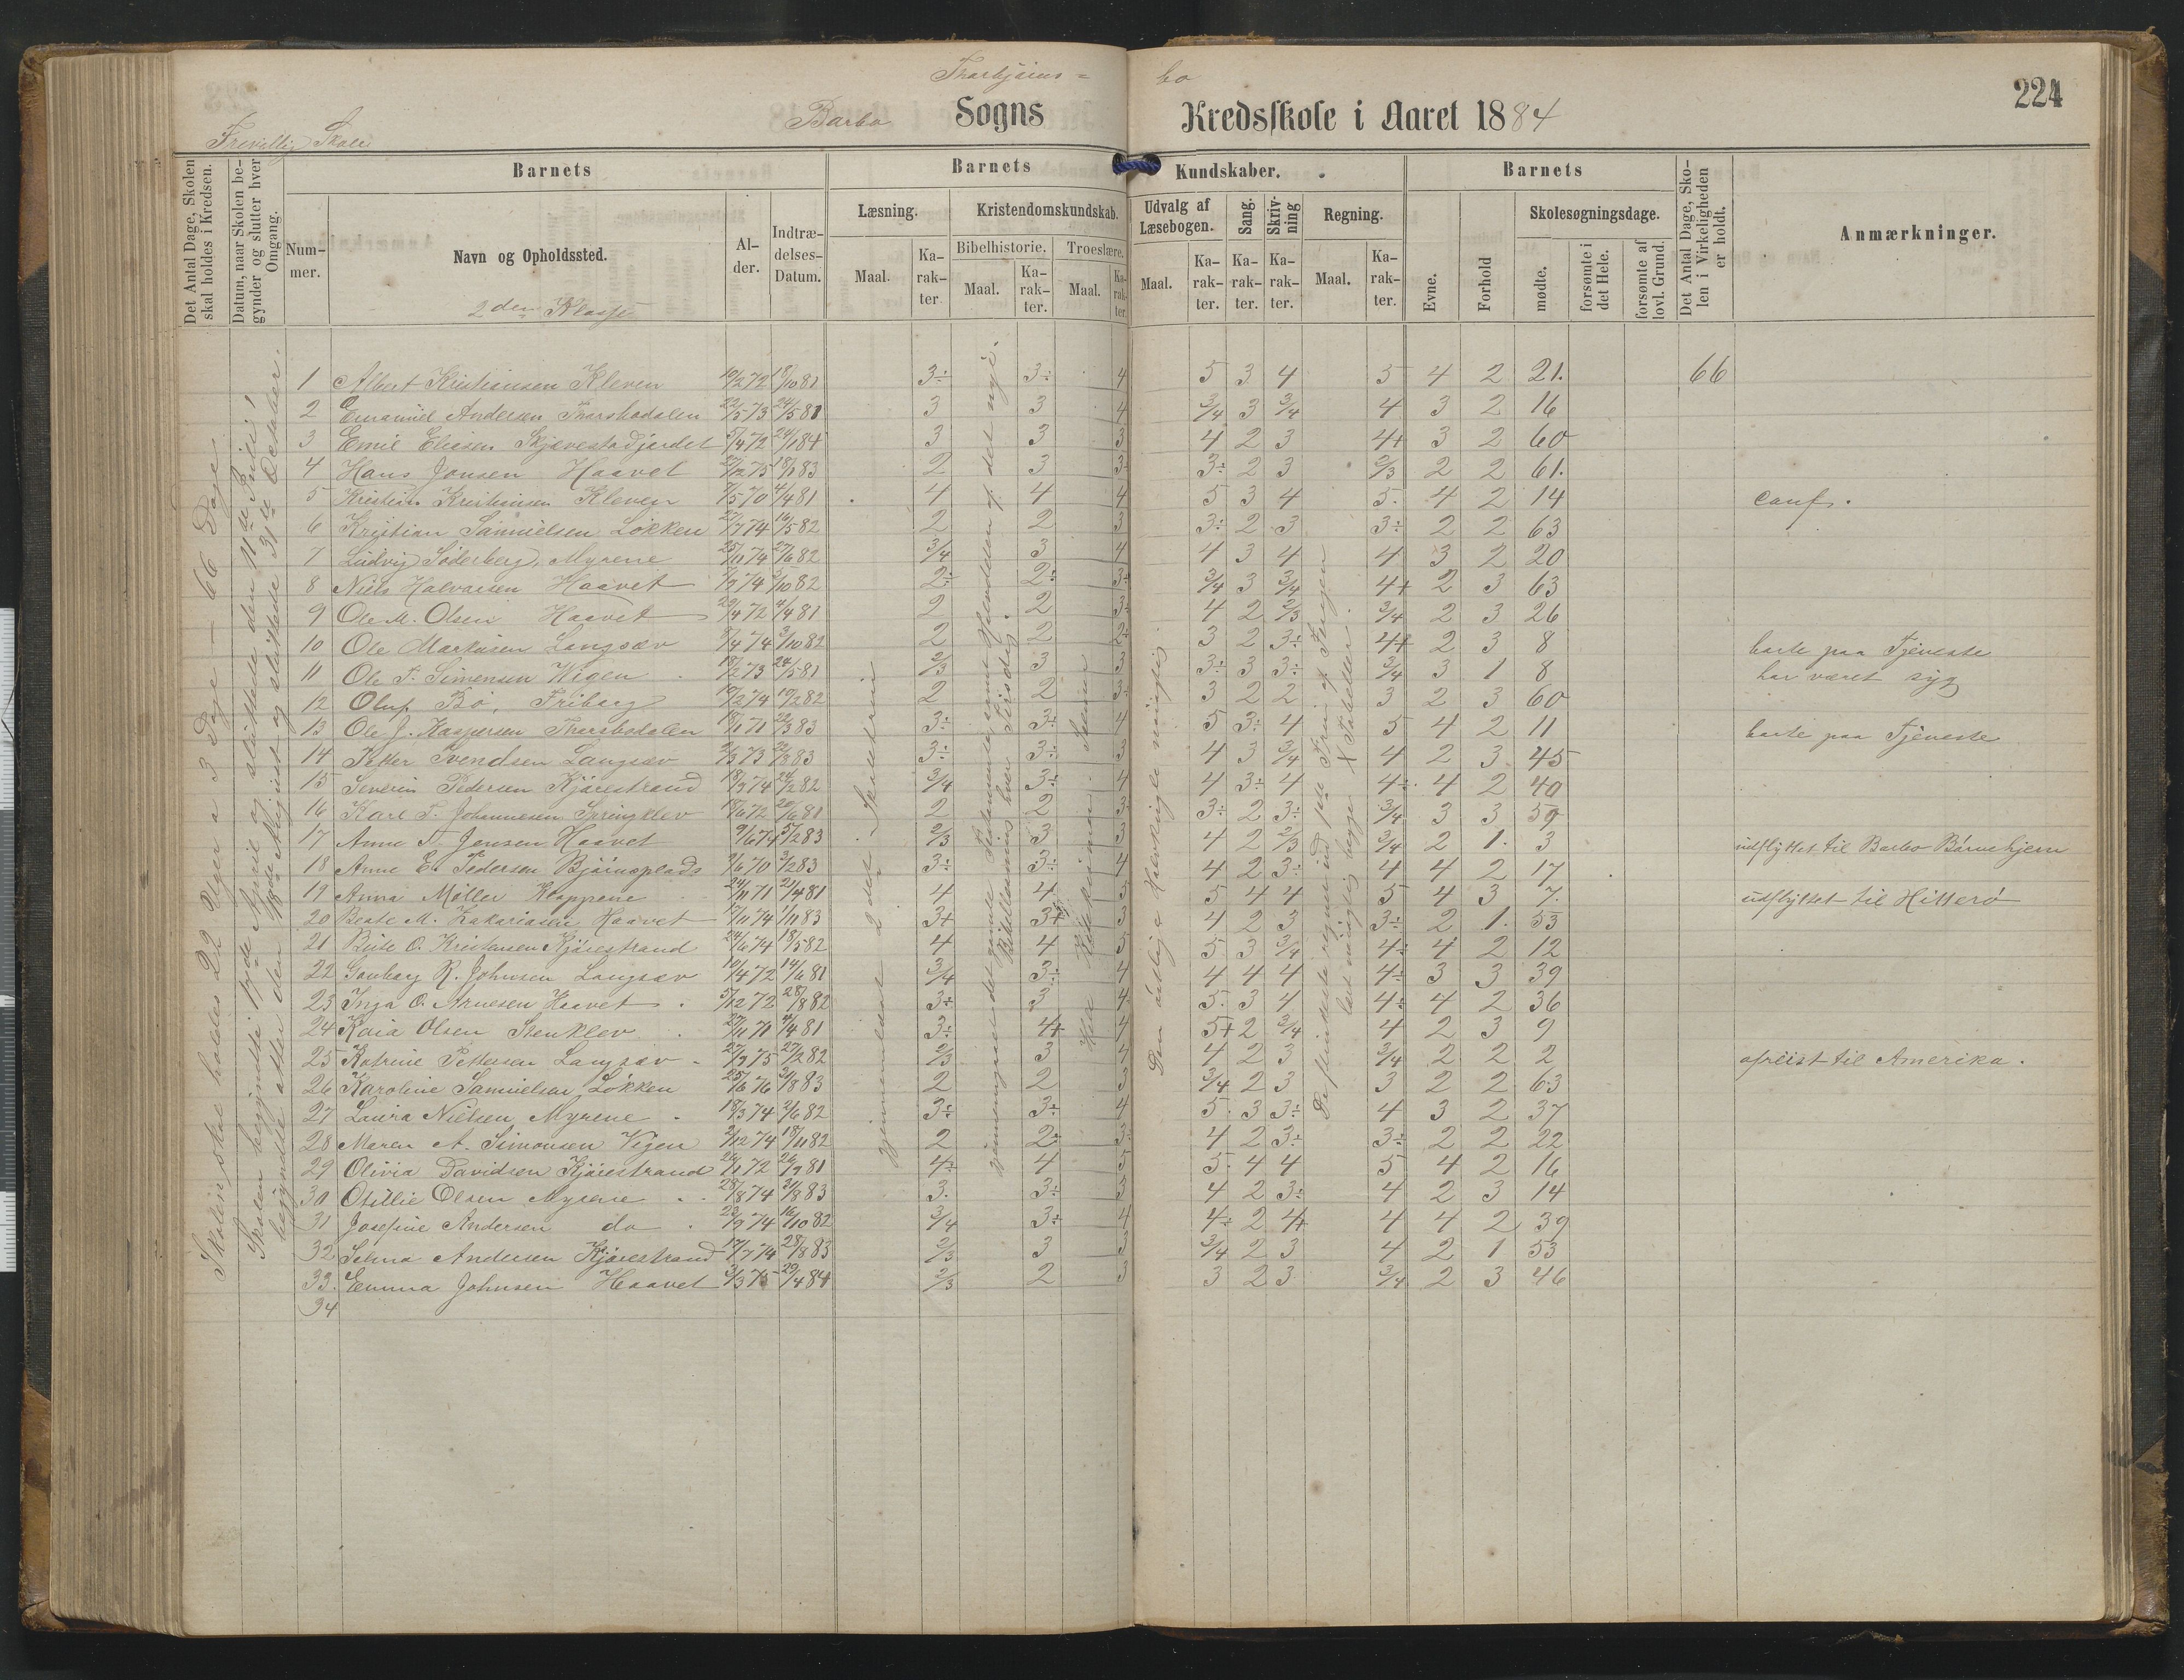 224
Barbo Sogns Kredsskole i Aaret 1884
Frivillig Skole
Det Antal Dage, Skolen skal holdes i Kredsen.
Datum, naar Skolen begynder og slutter hver Omgang.
Barnets
Nummer.
Navn og Opholdssted.
Alder.
Indtrædelses-Datum.
Barnets Kundskaber.
Læsning.
Maal.
Karakter
Kristendomskundskab.
Bibelhistorie.
Maal.
Karakter.
Troeslære.
Maal.
Karakter.
Udvalg af Læsebogen.
Maal.
Karakter.
Sang.
Karakter.
Skrivning
Karakter.
Regning.
Maal.
Karakter.
Barnets
Evne.
Forhold
Skolesøgningsdage.
mødte.
forsømte i det Hele.
forsømte af lovl. Grund.
Det Antal Dage, Skolen i Virkeligheden er holdt.
Anmærkninger.
2den Klasse
Skolen skal holdes 22 Uger a 3 Dage — 66 Dage
1 Albert Kristiansen Kleven 19/2 72 18/10 81 3÷ 3÷ 4 5 3 4 5 4 2 21. 66
2 Emanuel Andersen 22/5 73 24/5 81 3 3 4 3/4 3 3/4 4 3 2 16
3 Emil Eliasen 5/4 72 24/1 84 3 3 3 4 2 3 4+ 3 2 60
4 Hans Jonsen Haavet 27/12 75 18/1 83 2 3 3÷ 3÷ 2 3 2/3 2 2 61.
5 Kristian Kristiansen Kleven 7/5 70 4/4 81 4 4 4 5 3 4 5. 4 2 14 conf.
6 Kristian Samuelsen Løkken 27/7 74 16/5 82 2 2 3 3÷ 2 3 3÷ 2 2 63
7 Ludvig Søderberg, Myrene 25/11 74 27/6 82 3/4 3 4 4 3 4 4 3 2 20
8 Niels Halvorsen Haavet 74 5/10 82 2÷ 2÷ 3÷ 3/4 3 3/4 4+ 2 3 63
9 Ole M. Olsen Haavet 29/4 72 4/4 81 2 2 3÷ 4 2 2/3 3/4 2 3 26
10 Ole Markusen Langsæv 8/4 74 3/10 82 2 2 2÷ 3 2 3÷ 4+ 2 3 8 borte paa Tjeneste
11 Ole T. Simensen Wigen 18/2 73 24/5 81 2/3 3 3 3÷ 3 3÷ 3/4 3 1 8 har været syg
12 Oluf Bø, Friborg 17/2 74 19/2 82 2 2 3÷ 3 2 2 3 2 3 60
13 Ole J. Kaspersen 18/1 71 22/3 83 3÷ 3÷ 4 5 3÷ 4 5 4 2 11 borte paa Tjeneste
14 Petter Svendsen Langsæv 2/3 73 22/8 83 3÷ 3÷ 3 4 3 3/4 4 2 3 45
15 Severin Pedersen Kjørestrand 18/3 74 24/2 82 3/4 3÷ 4 4 3÷ 4 4÷ 4 2 40
16 Karl T. Johannesen Springklev 18/6 72 20/6 81 2 2 3÷ 3÷ 2 3÷ 3/4 3 3 59
17 Anne N. Jensen Haavet 9/6 74 5/2 83 2/3 3 3 4 2 2/3 3/4 2 1. 3 udflyttet til Barbo Børnehjem
18 Anne E. Pedersen Bjørnsplads 9/6 70 3/2 83 3÷ 3÷ 4 4 2 3÷ 4 4 2 17
19 Anna Møller Kloppene 24/11 71 21/4 81 4 4 5 5 4 4 5 4 3 7. udflyttet til Hitterø
20 Beate M. Zakariasen Haavet 17/11 74 1/11 83 3+ 3+ 3 4 2 3 3÷ 2 1. 53
21 O. Kristensen Kjørestrand 24/6 74 18/5 82 4 4 5 5 3 3/4 4÷ 4 2 12
22 R. Johnsen Langsæv 10/4 72 14/6 81 3/4 3÷ 4 4 4 4 4÷ 3 3 39
23 Inga O. Arnesen Haavet 5/12 72 28/8 82 3÷ 3 4 5. 3 4 4÷ 4 2 36
24 Kaia Olsen Stenklev 27/11 71 4/4 81 3÷ 4+ 4 5+ 2 3/4 4 2 3 9
25 Katrine Pettersen Langsæv 27/9 75 27/2 82 2/3 3 4 4 2 3 3/4 2 2 2 afreist til Amerika.
26 Karoline Samuelsen Løkken 25/6 76 31/8 83 2 2 3 3/4 2 3 3 2 2 63
27 Laura Nielsen Myrene 18/3 74 2/6 82 3÷ 3÷ 4 5. 3 3÷ 4 3 2 37
28 Maren A. Simonsen Vigen 2/12 74 18/11 82 2 2÷ 3÷ 4 2 3÷ 3÷ 2 2 22
29 Olivia Davidsen Kjørestrand 26/1 72 26/9 81 4÷ 4 5 5. 4 4 5 4 2 16
30 Otillie Olsen Myrene 28/8 74 31/8 83 3. 3÷ 3 4 2 3÷ 4 2 3 14
31 Josefine Andersen do 23/9 74 16/10 82 3/4 3÷ 4 4÷ 2 4+ 4 4 2 39
32 Selma Andersen Kjørestrand 17/7 74 28/8 83 2/3 3 3 3/4 2 3 4 2 1 53
33. Emma Johnsen Haavet 3/3 75 29/4 84 2/3 2 3 3 2 3 3/4 2 3 46
34